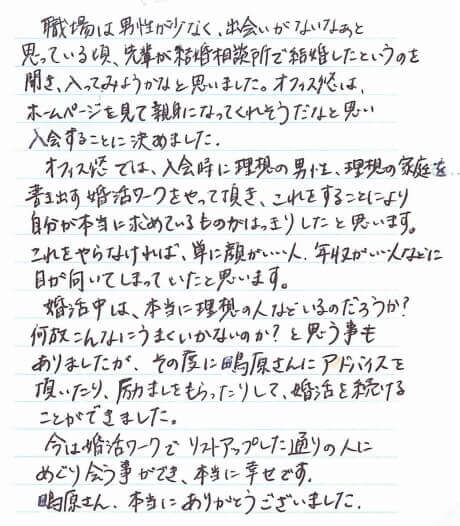 職場は男性が少なく、出会いがないなあと
思っている頃、先輩が結婚相談所で結婚したというのを
聞き、入ってみようかなと思いました。オフィス悠は、
ホームページを見て親身になってくれそうだなと思い
入会することに決めました。
オフィス悠では、入会時に理想の男性、理想の家庭を
書き出す婚活ワークをやって頂き、これをすることにより
自分が本当に求めているものがはっきりしたと思います。
これをやらなければ、単に顔がいい人、年収がいい人などに
目が向いてしまっていたと思います。
婚活中は、本当に理想の人などいるのだろうか?
何故こんなにうまくいかないのか?と思う事も
ありましたが、その度に鴫原さんにアドバイスを
頂いたり、励ましをもらったりして、婚活を続ける
ことができました。
今は婚活ワークでリストアップした通りの人に
めぐり会う事ができ、本当に幸せです。
鴫原さん、本当にありがとうございました。